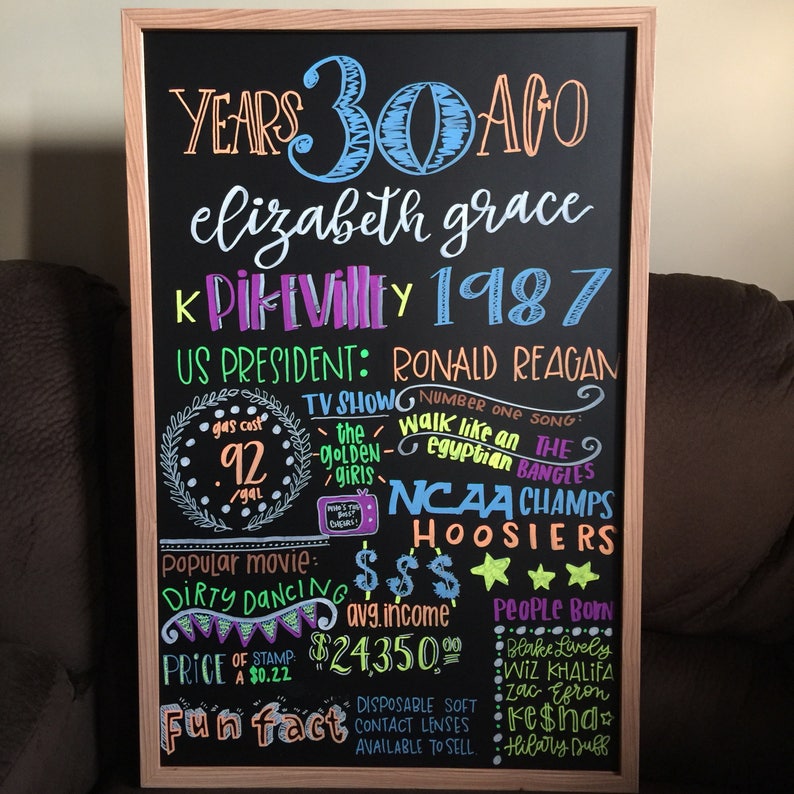 YEARS 30 AGO
elizabeth grace
K PIKEVILLE Y 1987
US PRESIDENT: RONALD REAGAN
gas cost
.92
/gal
TV SHOW
the
golden
girls
WHO'S THE
BOSS?
CHEERS!
NUMBER ONE SONG:
walk like an
egyptian THE
BANGLES
NCAA CHAMPS
HOOSIERS
popular movie:
DIRTY DANCING
$ $ $
avg. income
$24,350.00
PRICE OF A STAMP: $0.22
PEOPLE BORN
Blake Lively
WIZ KHALIFA
Zac Efron
KE$HA
Hilary Duff
Fun fact
DISPOSABLE SOFT
CONTACT LENSES
AVAILABLE TO SELL.